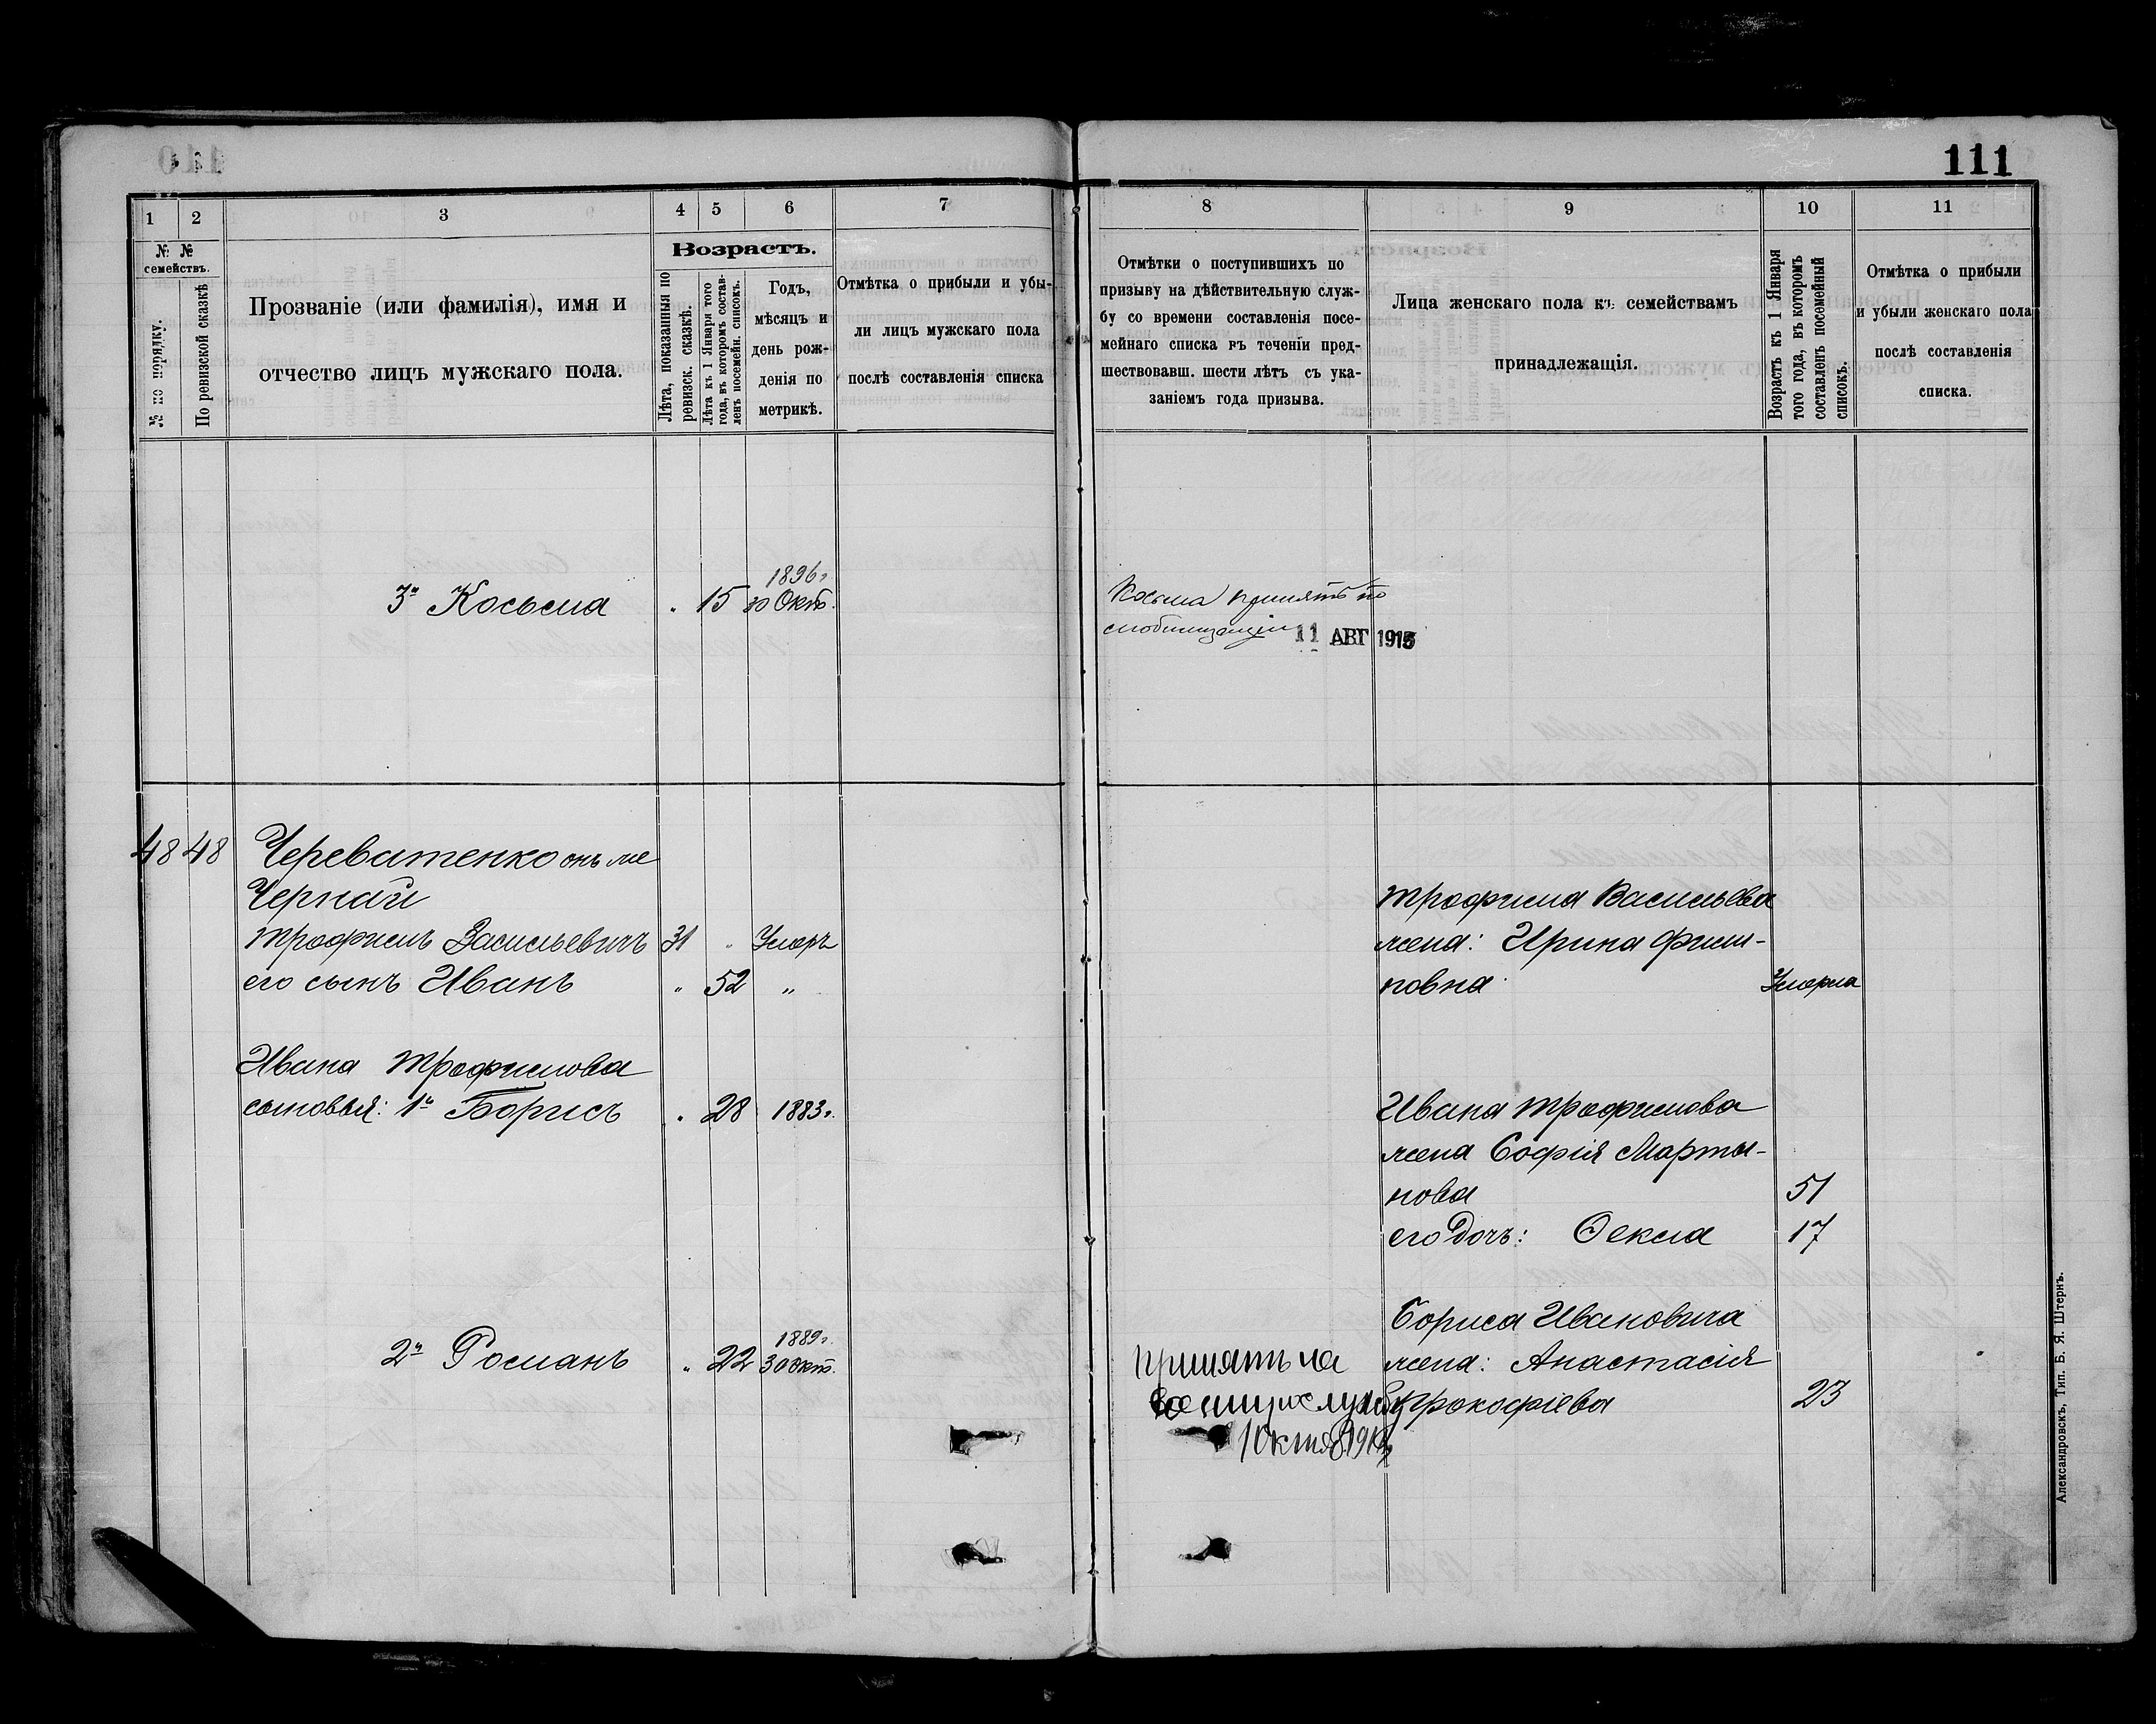 111
1 2 3 4 5 6 7
№ № семействъ.
№ по порядку.
По ревизской сказкѣ
Прозваніе (или фамилія), имя и
отчество лицъ мужскаго пола.
Возрастъ.
Лѣта, показанныя по
ревизск. сказкѣ.
Лѣта къ 1 Января того
года, въ которомъ состав-
ленъ посемейн. списокъ.
Годъ,
мѣсяцъ и
день рож-
денія по
метрикѣ.
Отмѣтка о прибыли и убы-
ли лицъ мужскаго пола
послѣ составленія списка
8 9 10 11
Отмѣтки о поступившихъ по
призыву на дѣйствительную служ-
бу со времени составленія посе-
мейнаго списка въ теченіи пред-
шествовавш. шести лѣтъ съ ука-
заніемъ года призыва.
Лица женскаго пола къ семействамъ
принадлежащія.
Возрастъ къ 1 Января
того года, въ которомъ
составленъ посемейный
списокъ.
Отмѣтка о прибыли
и убыли женскаго пола
послѣ составленія
списка.
1896г
3й Косьма „ 15 30 Окт.
Косьма принятъ по
мобилизаціи 11 АВГ 1915
48 48 Череватенко онъ же
Черный
Трофимъ Васильевичъ 31 „ Умеръ
его сынъ Иванъ „ 52 „
Ивана Трофимова
сыновья: 1й Борисъ „ 28 1883г.
1889г.
2й Романъ „ 22 30 Окт.
принятъ на
военную службу
1 Октяб 191
Трофима Васильева
жена: Ирина Фили-
повна Умерла
Ивана Трофимова
жена Софія Марты-
нова 51
его дочь: Фекла 17
Бориса Ивановича
жена: Анастасія
Прокофіева 23
Александровскъ, Тип. Б. Я. Штернъ.